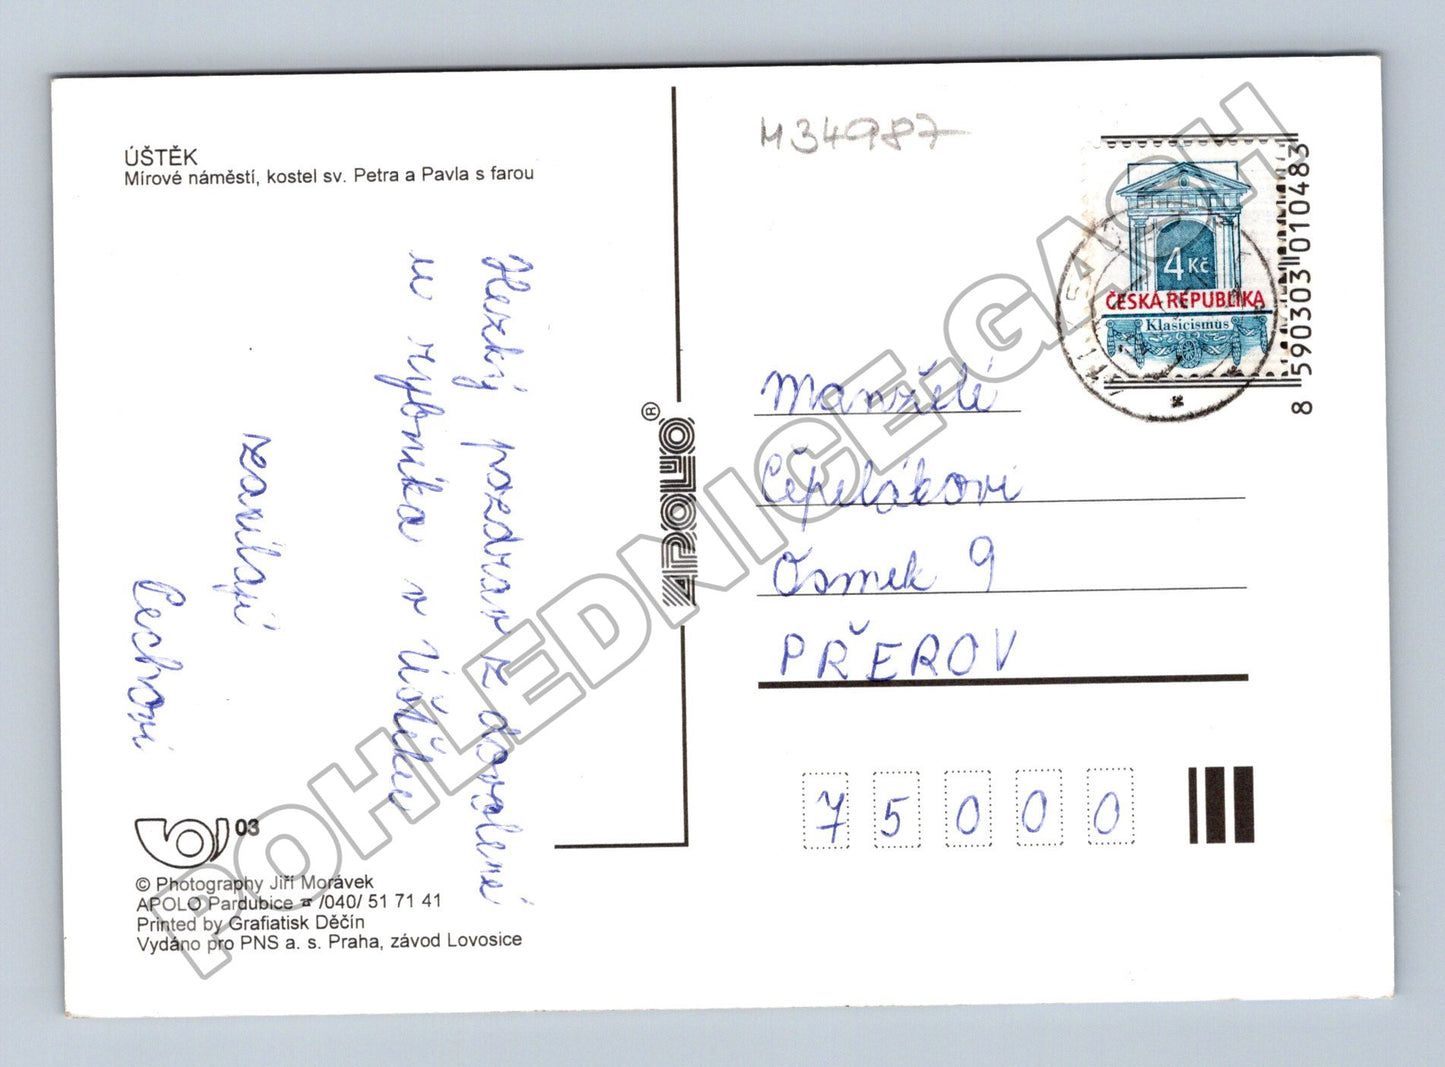 ÚŠTĚK
Mírové náměstí, kostel sv. Petra a Pavla s farou
Hezký pozdrav z dovolené
u rybníka v Úštěku
zasílají
Čechovi
03
© Photography Jiří Morávek
APOLO Pardubice ☎ /040/ 51 71 41
Printed by Grafiatisk Děčín
Vydáno pro PNS a. s. Praha, závod Lovosice
APOLO®
M34987
4 Kč
ČESKÁ REPUBLIKA
Klasicismus
8 590303 010483
Manželé
Čepelákovi
Osmek 9
PŘEROV
75000
POHLEDNICE-GASH